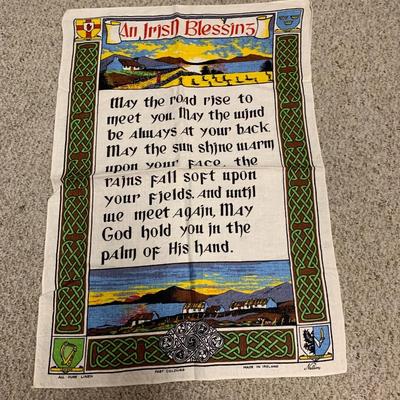 An Irish Blessing
May the road rise to
meet you. May the wind
be always at your back.
May the sun shine warm
upon your face, the
rains fall soft upon
your fields. And until
we meet again, May
God hold you in the
palm of His hand.
ALL PURE LINEN
FAST COLOURS
MADE IN IRELAND